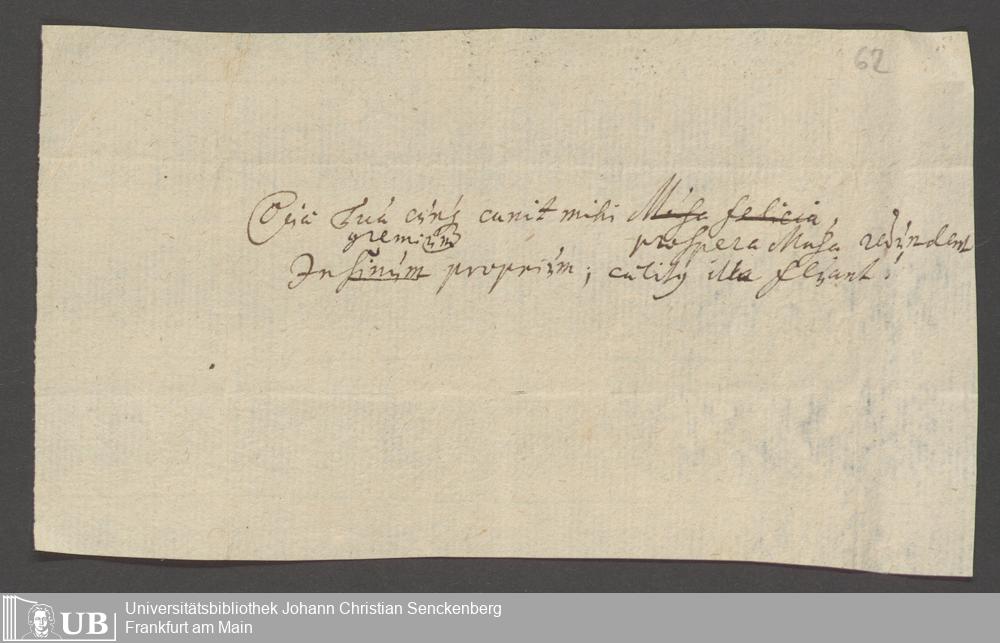 62
Quae Tua cunq; canit mihi Musa felicia,
gremium prospera Musa redundent
In sinum proprium; caelitq illa fluant.
UB Universitätsbibliothek Johann Christian Senckenberg
Frankfurt am Main